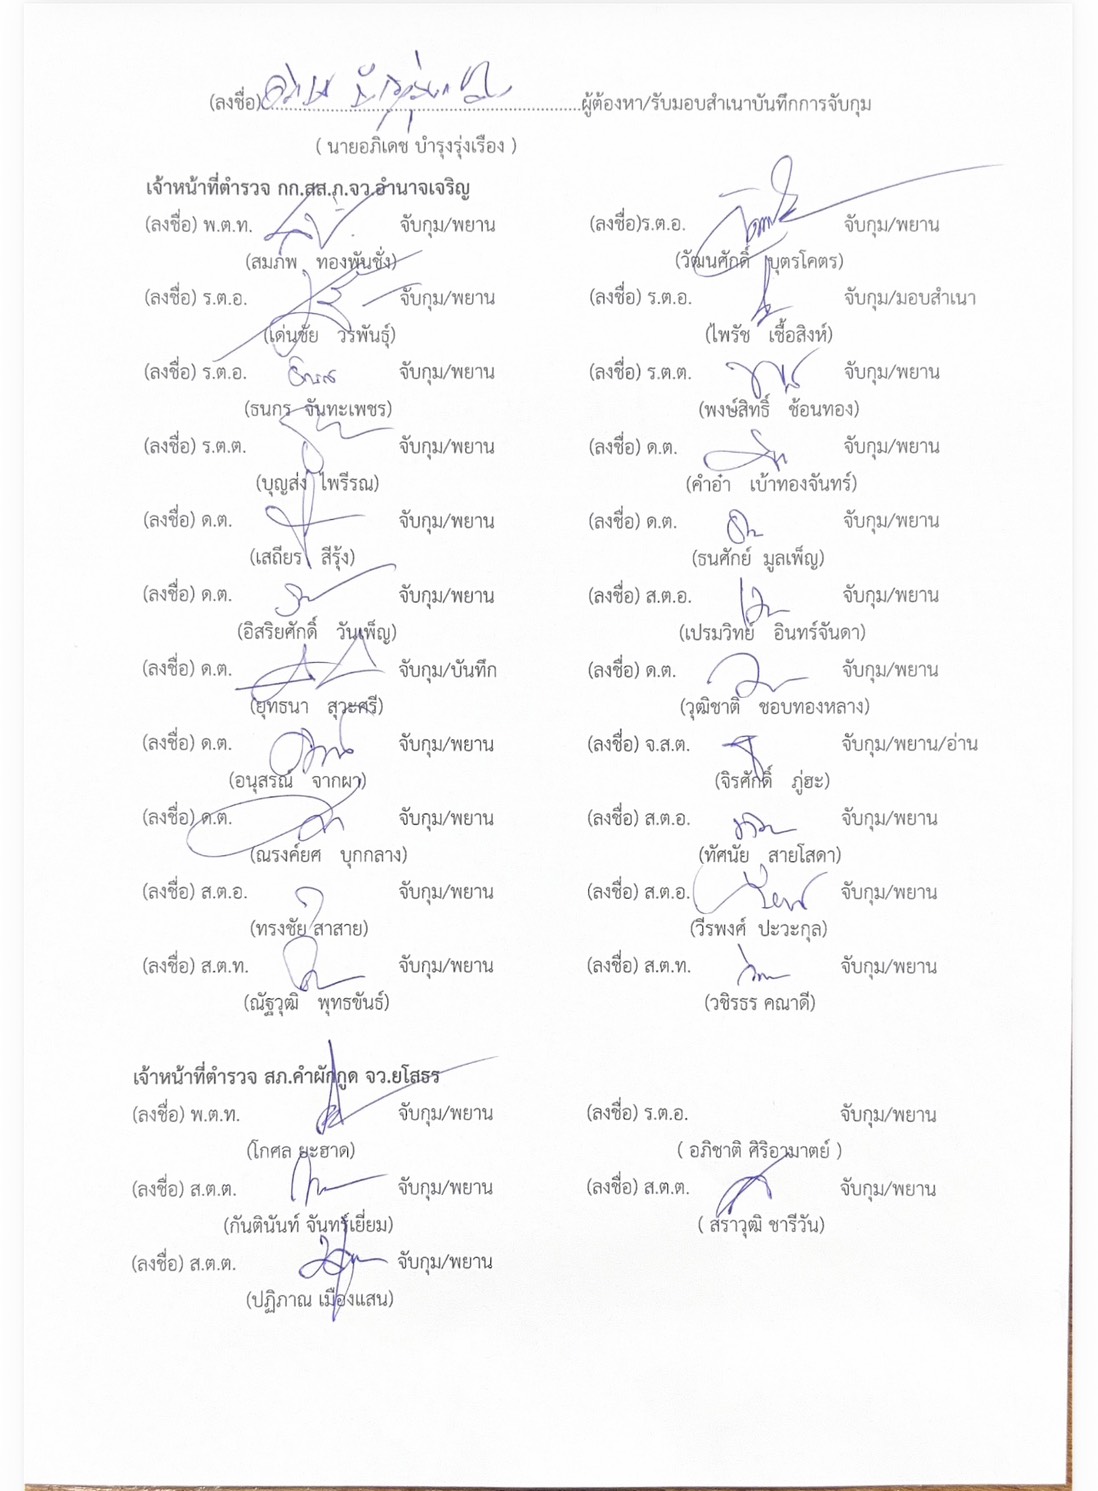 (ลงชื่อ)..............................ผู้ต้องหา/รับมอบสำเนาบันทึกการจับกุม
( นายอภิเดช บำรุงรุ่งเรือง )
เจ้าหน้าที่ตำรวจ กก.สส.ภ.จว.อำนาจเจริญ
(ลงชื่อ) พ.ต.ท. จับกุม/พยาน (ลงชื่อ)ร.ต.อ. จับกุม/พยาน
(สมภพ ทองพันชั่ง) (วัฒนศักดิ์ บุตรโคตร)
(ลงชื่อ) ร.ต.อ. จับกุม/พยาน (ลงชื่อ) ร.ต.อ. จับกุม/มอบสำเนา
(เด่นชัย วรพันธุ์) (ไพรัช เชื้อสิงห์)
(ลงชื่อ) ร.ต.อ. จับกุม/พยาน (ลงชื่อ) ร.ต.ต. จับกุม/พยาน
(ธนกร จันทะเพชร) (พงษ์สิทธิ์ ช้อนทอง)
(ลงชื่อ) ร.ต.ต. จับกุม/พยาน (ลงชื่อ) ด.ต. จับกุม/พยาน
(บุญส่ง ไพรีรณ) (คำอ่ำ เบ้าทองจันทร์)
(ลงชื่อ) ด.ต. จับกุม/พยาน (ลงชื่อ) ด.ต. จับกุม/พยาน
(เสถียร สีรุ้ง) (ธนศักย์ มูลเพ็ญ)
(ลงชื่อ) ด.ต. จับกุม/พยาน (ลงชื่อ) ส.ต.อ. จับกุม/พยาน
(อิสริยศักดิ์ วันเพ็ญ) (เปรมวิทย์ อินทร์จันดา)
(ลงชื่อ) ด.ต. จับกุม/บันทึก (ลงชื่อ) ด.ต. จับกุม/พยาน
(ยุทธนา สุวะศรี) (วุฒิชาติ ชอบทองหลาง)
(ลงชื่อ) ด.ต. จับกุม/พยาน (ลงชื่อ) จ.ส.ต. จับกุม/พยาน/อ่าน
(อนุสรณ์ จากผา) (จิรศักดิ์ ภู่ฮะ)
(ลงชื่อ) ด.ต. จับกุม/พยาน (ลงชื่อ) ส.ต.อ. จับกุม/พยาน
(ณรงค์ยศ บุกกลาง) (ทัศนัย สายโสดา)
(ลงชื่อ) ส.ต.อ. จับกุม/พยาน (ลงชื่อ) ส.ต.อ. จับกุม/พยาน
(ทรงชัย สาสาย) (วีรพงศ์ ปะวะกุล)
(ลงชื่อ) ส.ต.ท. จับกุม/พยาน (ลงชื่อ) ส.ต.ท. จับกุม/พยาน
(ณัฐวุฒิ พุทธขันธ์) (วชิรธร คณาดี)
เจ้าหน้าที่ตำรวจ สภ.คำผักกูด จว.ยโสธร
(ลงชื่อ) พ.ต.ท. จับกุม/พยาน (ลงชื่อ) ร.ต.อ. จับกุม/พยาน
(โกศล ยะฮาด) ( อภิชาติ ศิริอามาตย์ )
(ลงชื่อ) ส.ต.ต. จับกุม/พยาน (ลงชื่อ) ส.ต.ต. จับกุม/พยาน
(กันตินันท์ จันทร์เยี่ยม) ( สราวุฒิ ชารีวัน)
(ลงชื่อ) ส.ต.ต. จับกุม/พยาน
(ปฏิภาณ เมืองแสน)